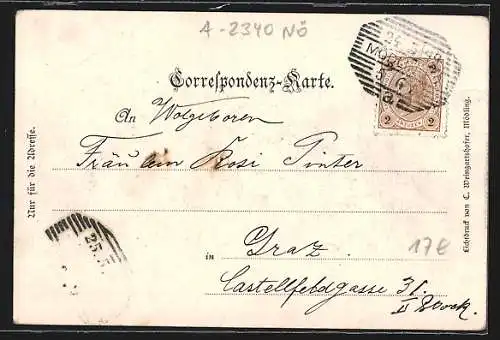 A-2340 NÖ
Correspondenz-Karte.
An Wolgeboren
Fräulein Rosi Pinter
in Graz
Castellfeldgasse 31.
II Stock.
17€
Nur für die Adresse.
Lichtdruck von C. Weingartshofer, Mödling.
2 2
25